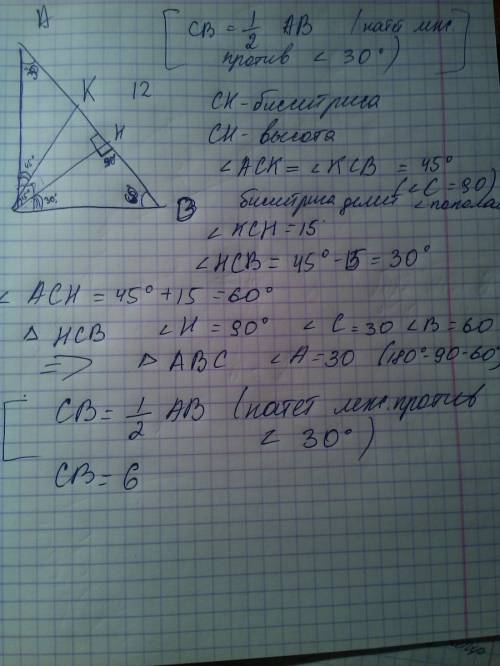 A
[ CB = 1/2 AB (катет леж.
против < 30° ) ]
30°
K
12
H
90°
45°
15°
30°
60
B
CK - биссектриса
CH - высота
∠ACK = ∠KCB = 45°
(∠C = 90)
биссектриса делит ∠ пополам
∠KCH = 15°
∠HCB = 45° - 15 = 30°
∠ ACH = 45° + 15 = 60°
△ HCB ∠H = 90° ∠C = 30 ∠B = 60
=> △ ABC ∠A = 30 (180°-90-60)
[ CB = 1/2 AB (катет леж. против
< 30° )
CB = 6